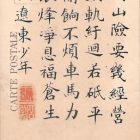 山險要幾經營
軌紆迴若砥平
餉不煩車馬力
烽淨息蒼生
道東少年
CARTE POSTALE